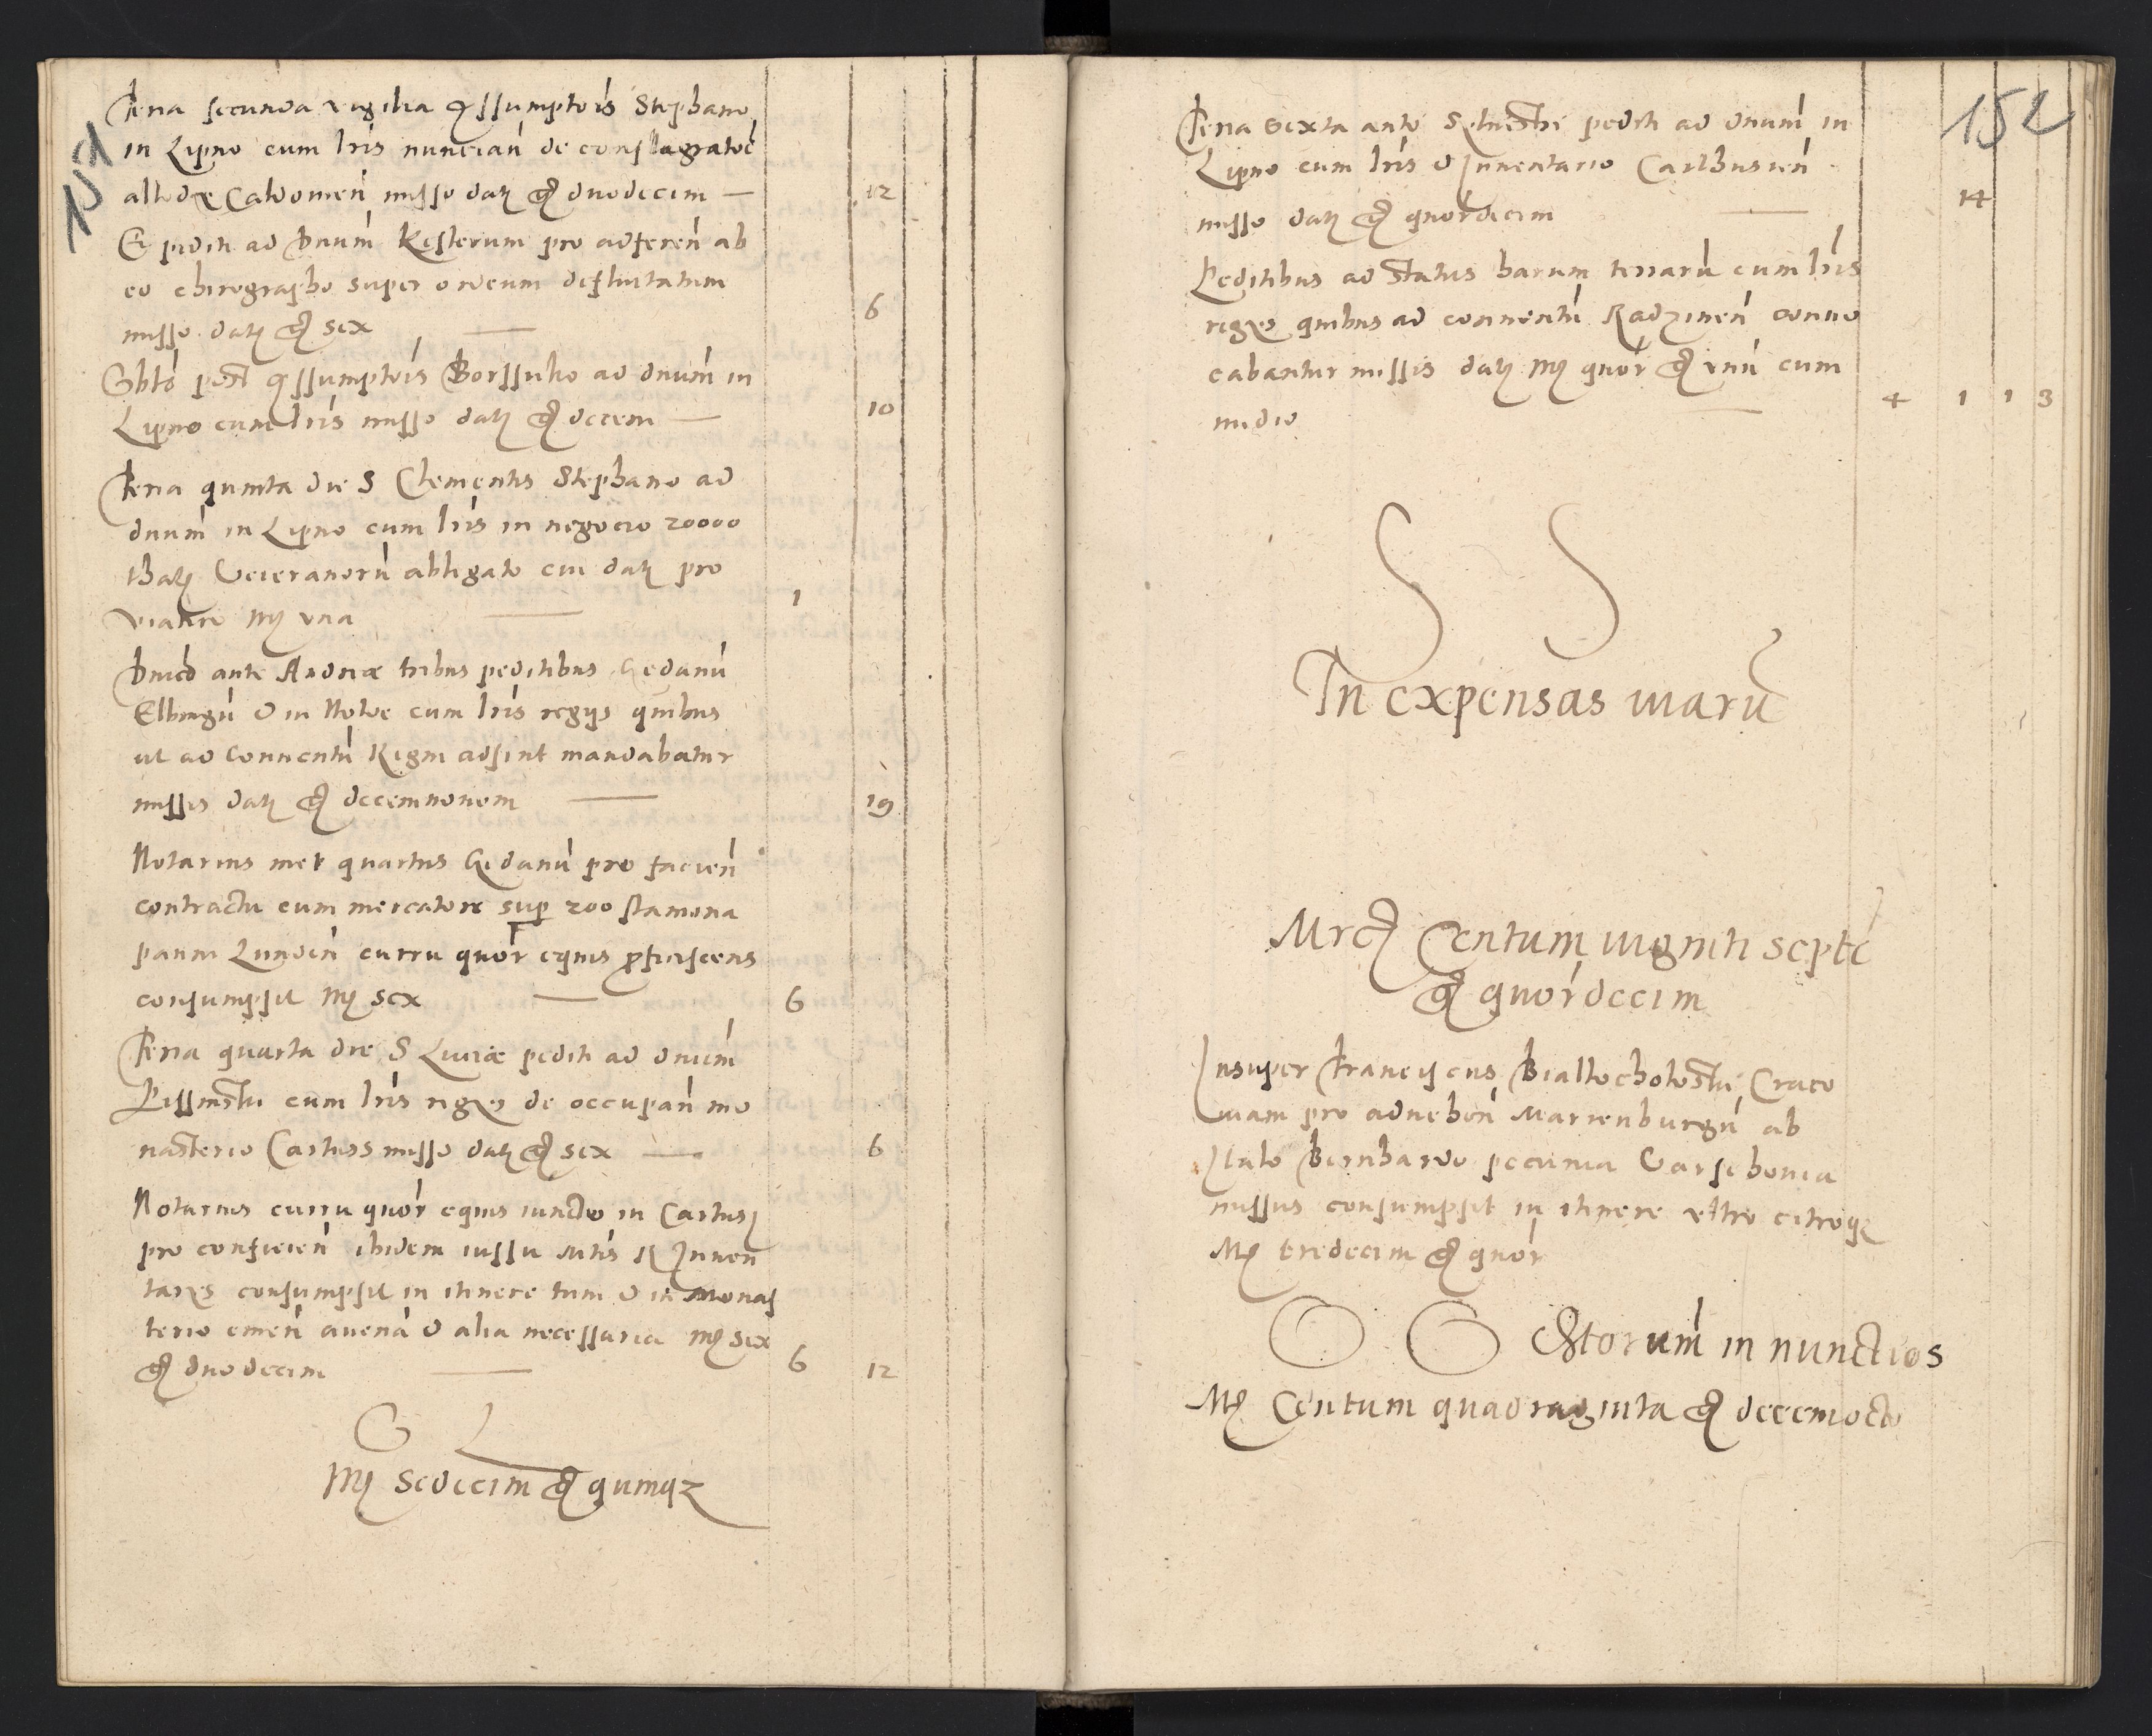 Feria secunda vigilia Assumptiōis Stephano
in Lipno cum lrīs nuncian̄ de conflagratōe
allodÿ Caldomen̄ misso datȝ gr duodecim — 12
Et pediti ad Dnūm Kesterum pro adferen̄ ab
eo chirographo super ordeum defluitatum
misso datȝ gr sex — 6
Sbtō post Assumptōis Borssuko ad dnūm in
Lipno cum lrīs misso datȝ gr decem — 10
Feria quinta die S Clementis Stephano ad
dnūm in Lipno cum lrīs in negocio 20000
thalȝ obligato cui datȝ pro
viatico Mȝ una — 1
Dnicō ante Andreæ tribus peditibus Gedanū
Elbingū & in Nowe cum lrīs regÿs quibus
ut ad conuentū Regni adsint mandabatur
missis datȝ gr decemnouem — 19
Notarius met quartus Gedanū pro facien̄
contractu cum mercatore sup 200 stamona
panni Lunden̄ curru quōr equis proficiscens
consumpsit Mȝ sex — 6
Feria quarta die S Luciæ pediti ad dnūm
cum lrīs regÿs de occupan̄ mo
nasterio Cartuss misso datȝ gr sex — 6
Notarius curru quōr equis iuncto in Cartusȝ
pro conficien̄ ibidem iussu Mtis R Inuen
tarÿs consumpsit in itinere tum & in Monas
terio emen̄ auenā & alia necessaria Mȝ sex
gr duodecim — 6 12
Mȝ sedecim gr quinqȝ
152
Feria sexta ante Siluestri pediti ad dnūm in
Lipno cum lrīs & Inuentario Carthusien̄
misso datȝ gr quōrdecim — 14
Peditibus ad status harum terrarū cum lrīs
regÿs quibus ad conuentū Radzinen̄ conuo
cabantur missis datȝ Mȝ quōr gr unū cum
medio — 4 1 1 3
S S
In expensas uiarū
Mrcȝ Centum uiginti septē
gr quōrdecim
Insuper Franciscus Craco
uiam pro aduehen̄ Marienburgū ab
Italo Bernhardo pecunia
missus consumpsit in itinere ultro citroqȝ
Mȝ tredecim gr quōr
Storum in nunctios
Mȝ Centum quadraginta gr decemocto